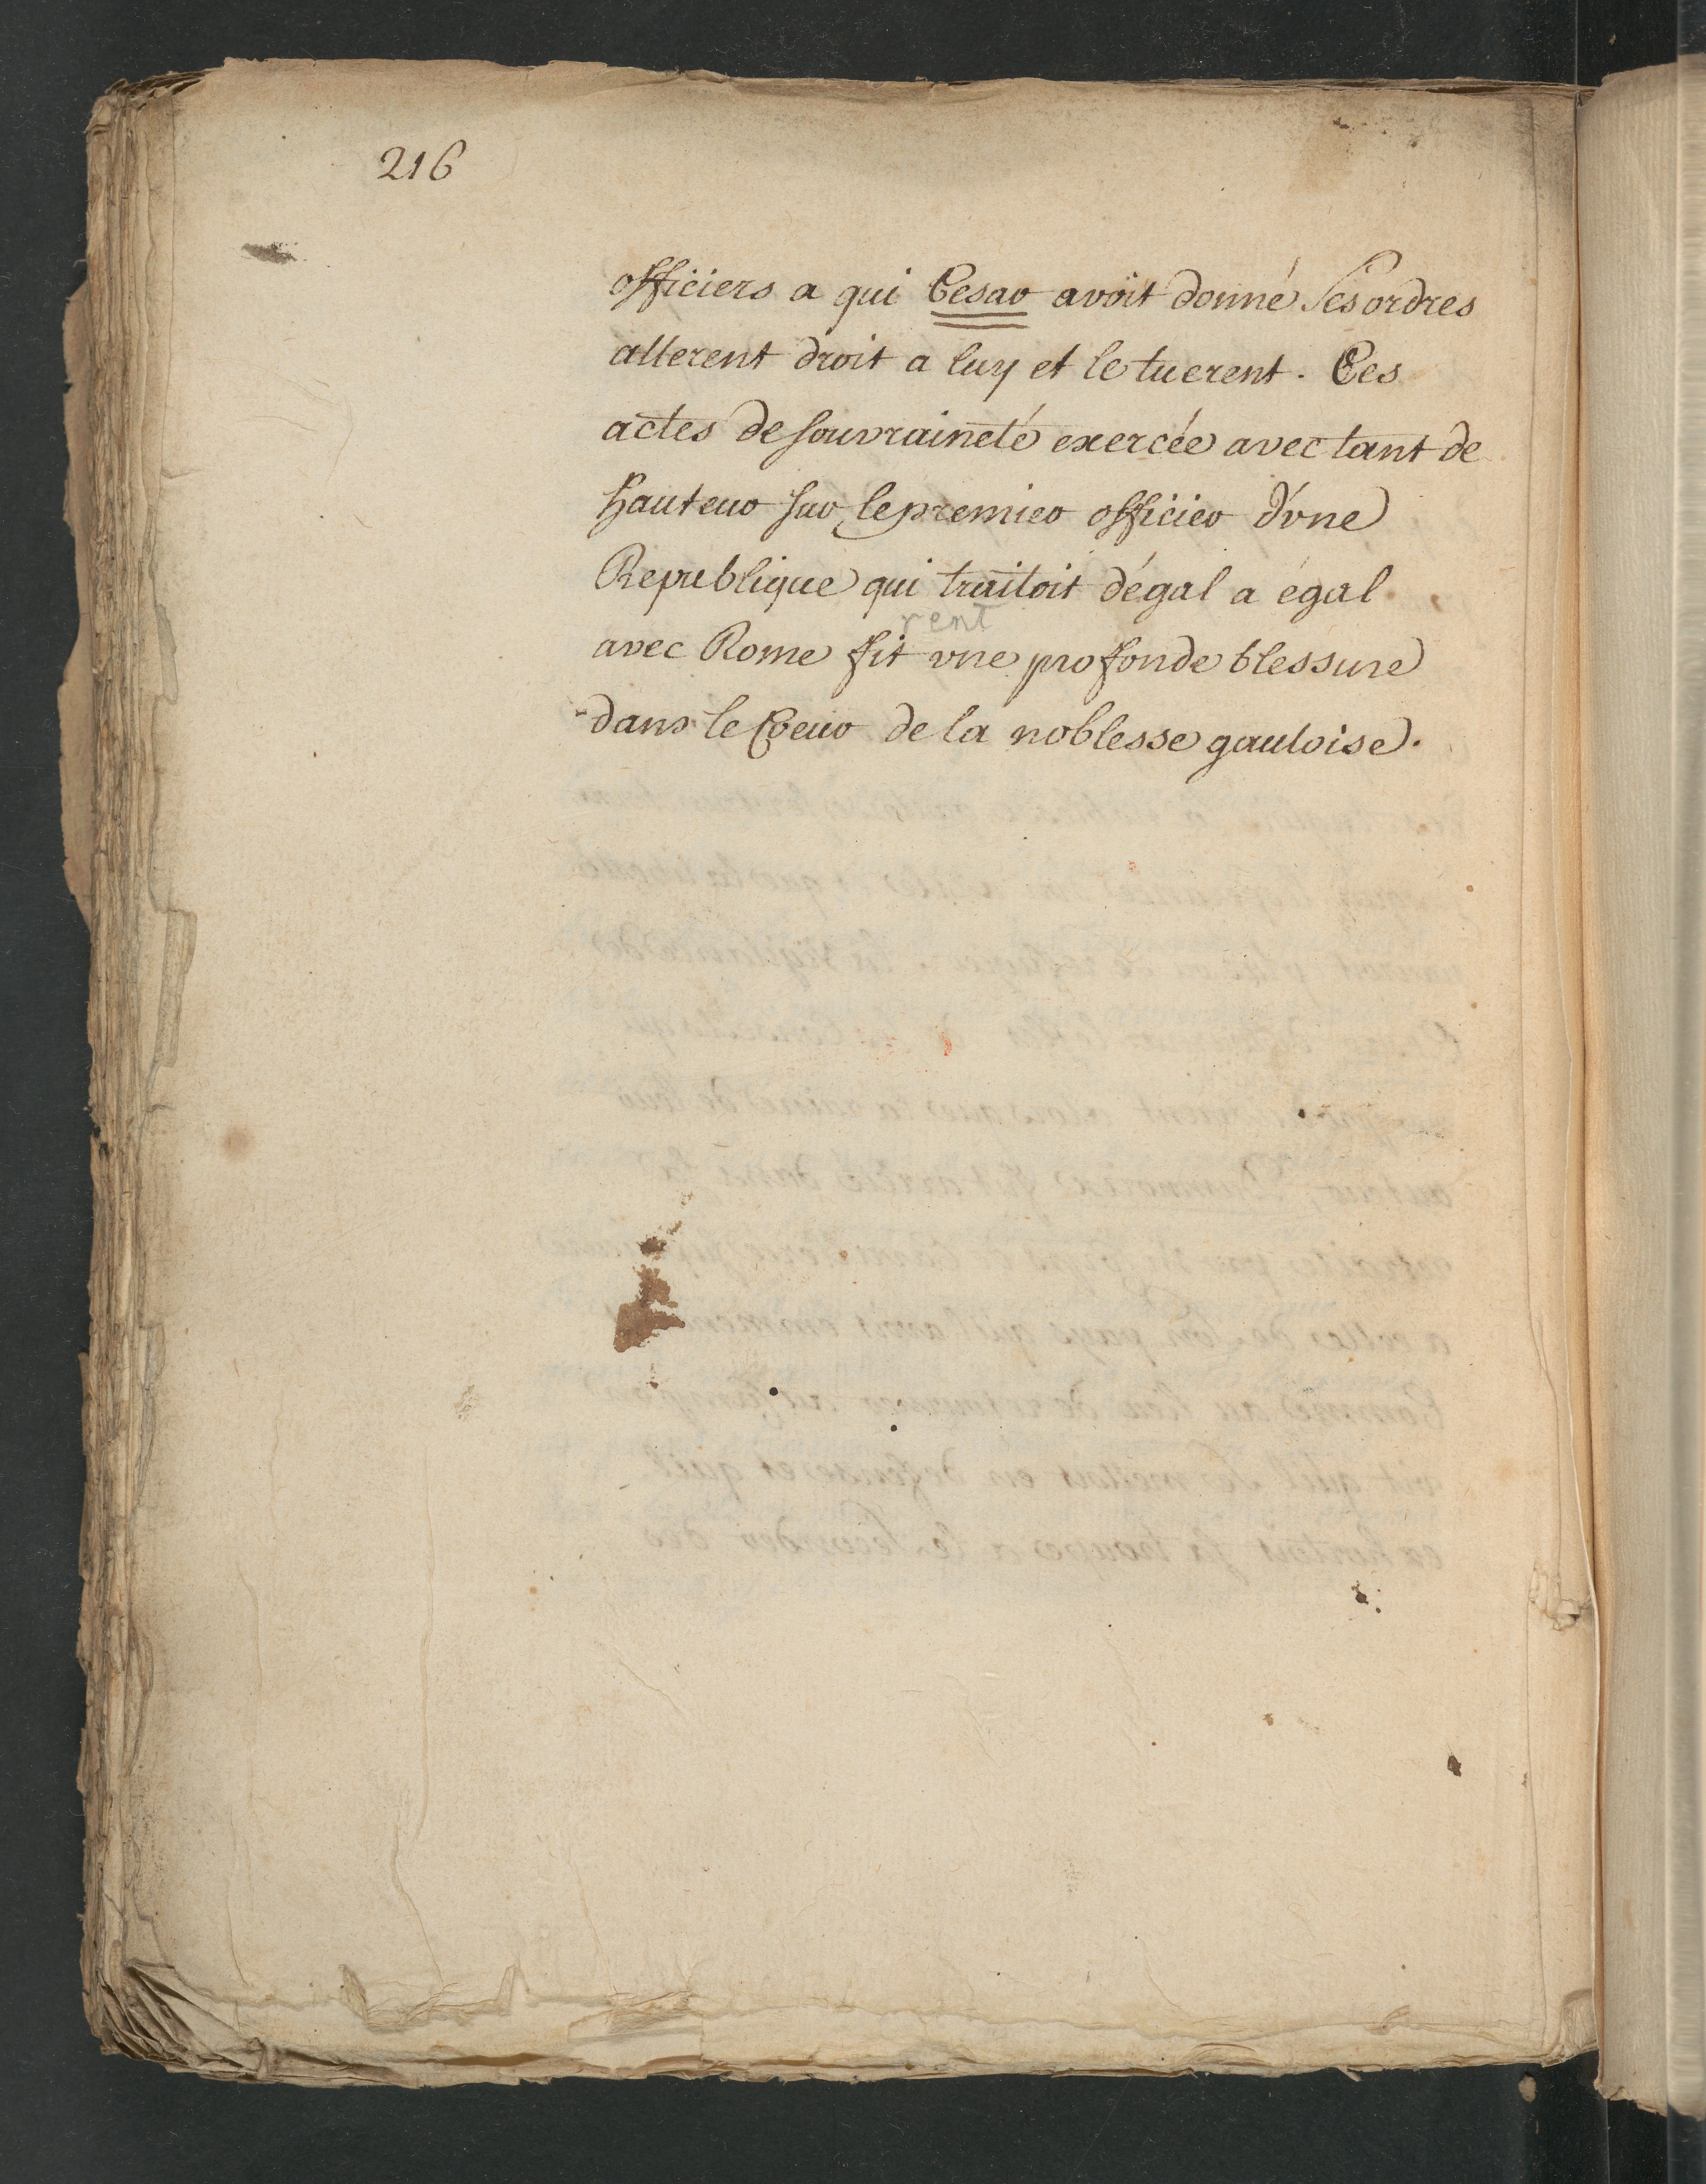 216
officiers a qui Cesar avoit donné ses ordres
allerent droit a luy et le tuerent. Ces
actes de souvraineté exercée avec tant de
hauteur sur le premier officier d'vne
Republique qui traitoit dégal a égal
rent
avec Rome fit vne profonde blessure
dans le Coeur de la noblesse gauloise.